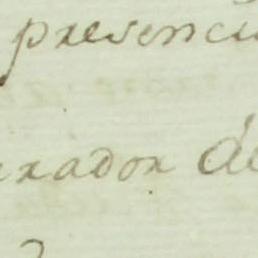 presenci
rador de